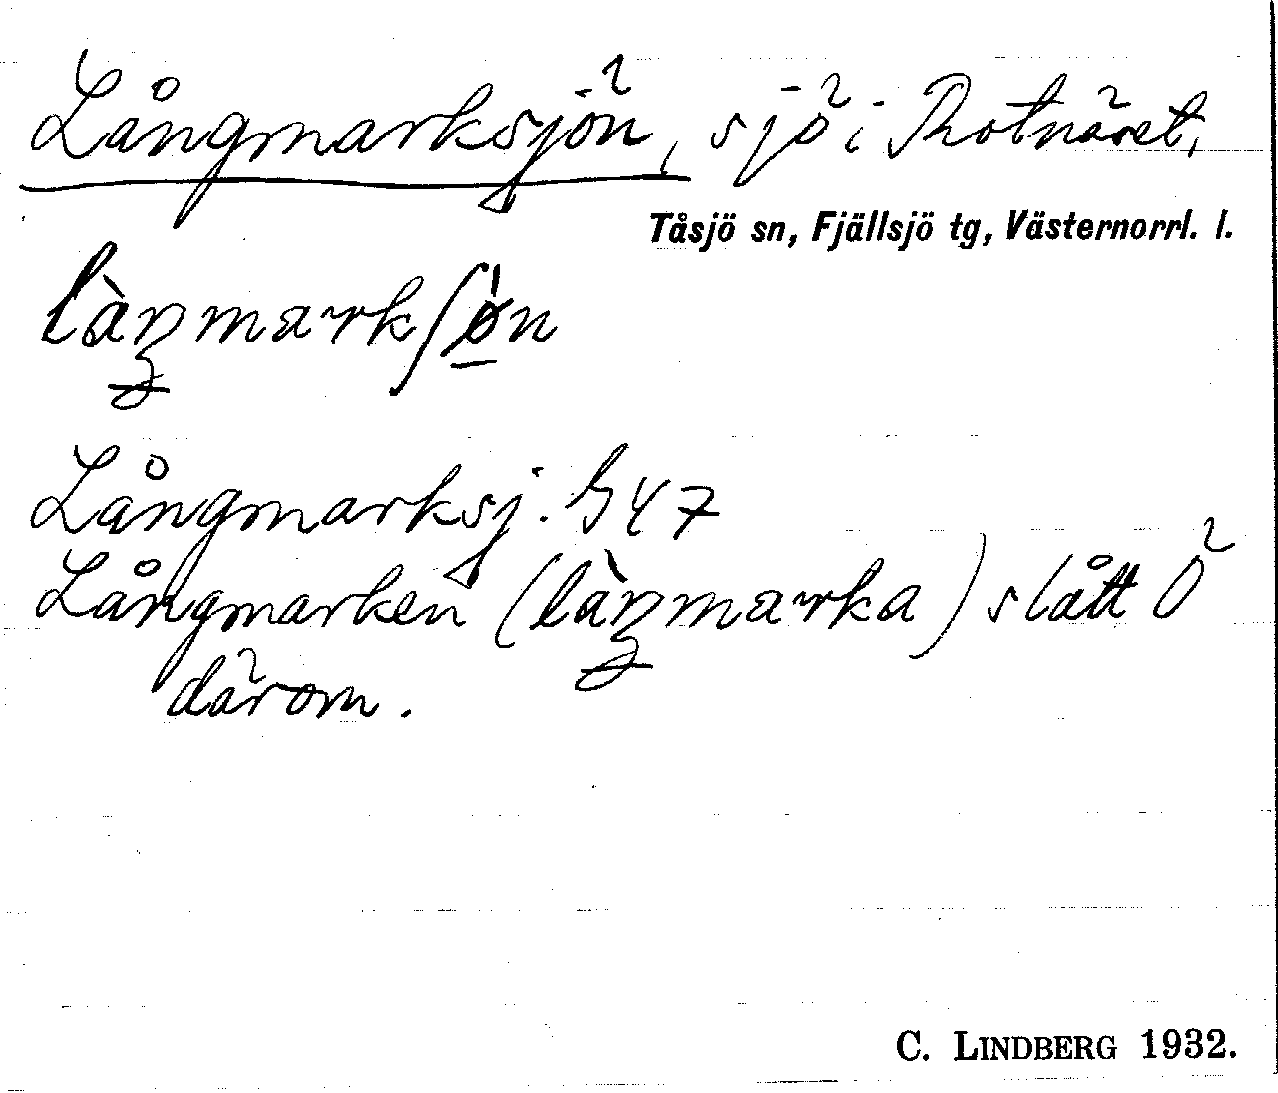 Långmarksjön, sjö i Rotnäset,
Tåsjö sn, Fjällsjö tg, Västernorrl. l.
làŋmarkʃø̀n
Långmarksj. G 47
Långmarken (làŋmarka) slått Ö
därom.
C. LINDBERG 1932.